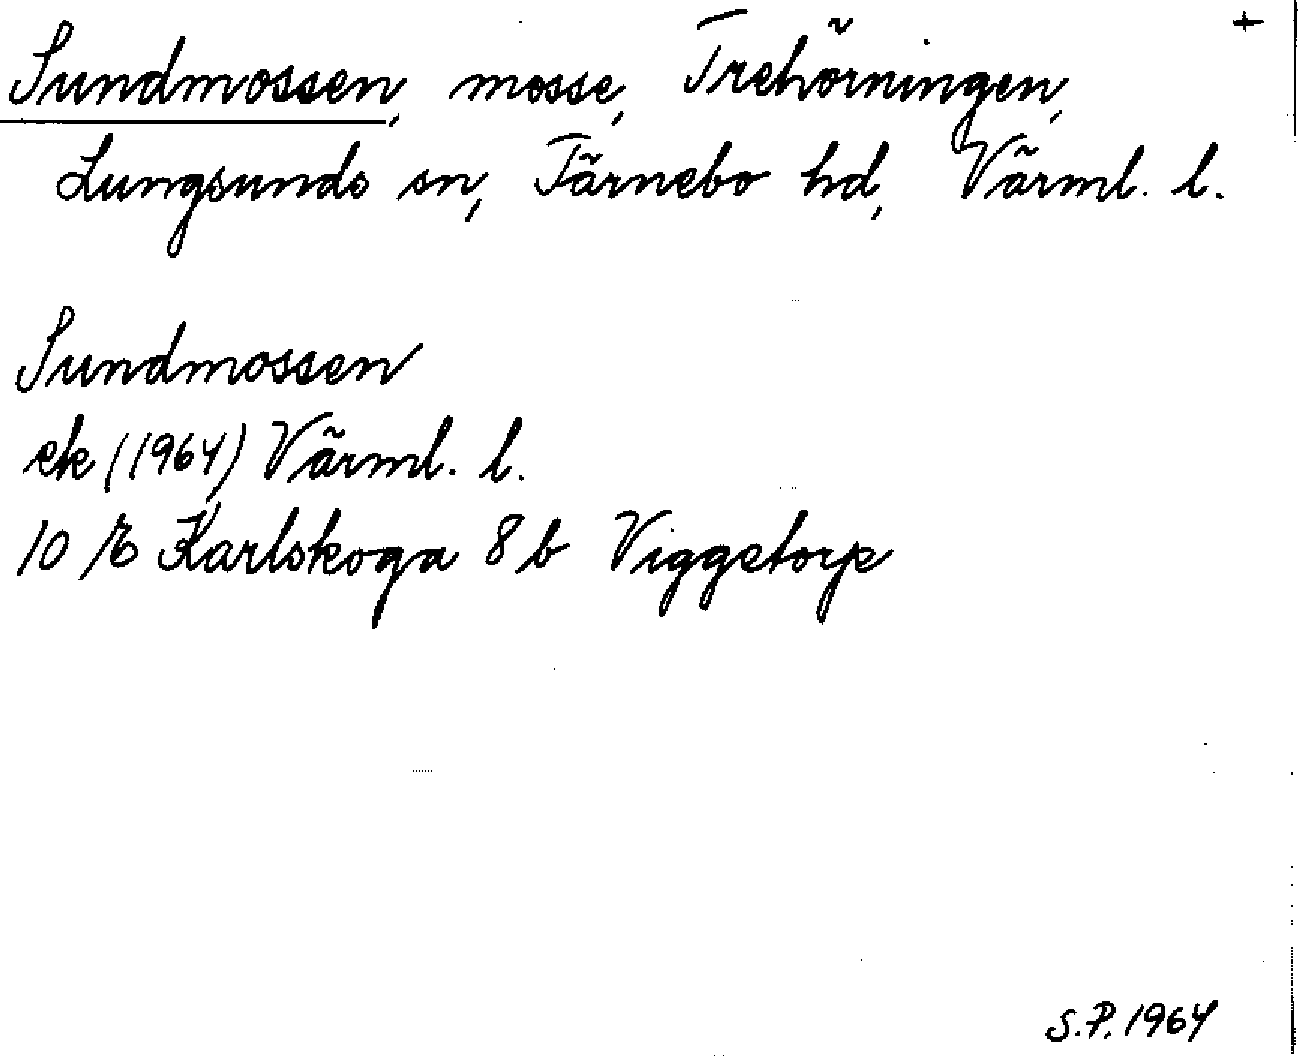 +
Sundmossen, mosse, Trehörningen,
Lungsunds sn, Färnebo hd, Värml. l.
Sundmossen
ek (1964) Värml. l.
10 E Karlskoga 8 b Viggetorp
S.P. 1964